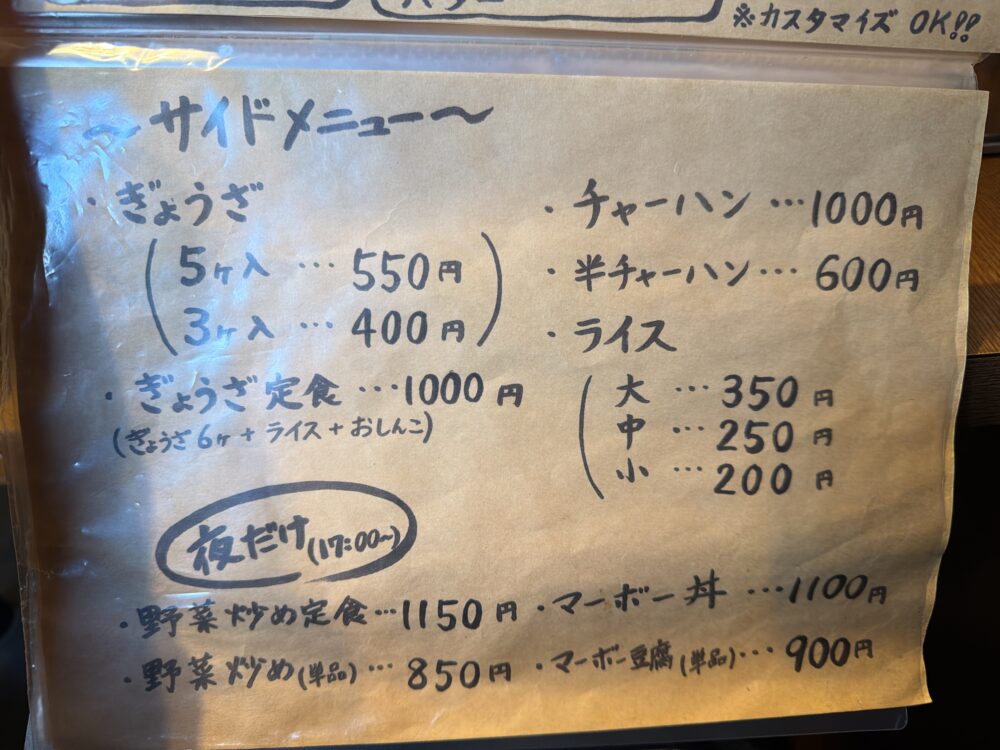 ※カスタマイズ OK!!
～サイドメニュー～
・ぎょうざ
(5ヶ入 … 550円
3ヶ入 … 400円)
・ぎょうざ定食 …1000円
(ぎょうざ6ヶ+ライス+おしんこ)
・チャーハン …1000円
・半チャーハン… 600円
・ライス
(大 … 350円
中 … 250円
小 … 200円
夜だけ(17:00~)
・野菜炒め定食…1150円
・野菜炒め(単品)… 850円
・マーボー丼 …1100円
・マーボー豆腐(単品)… 900円